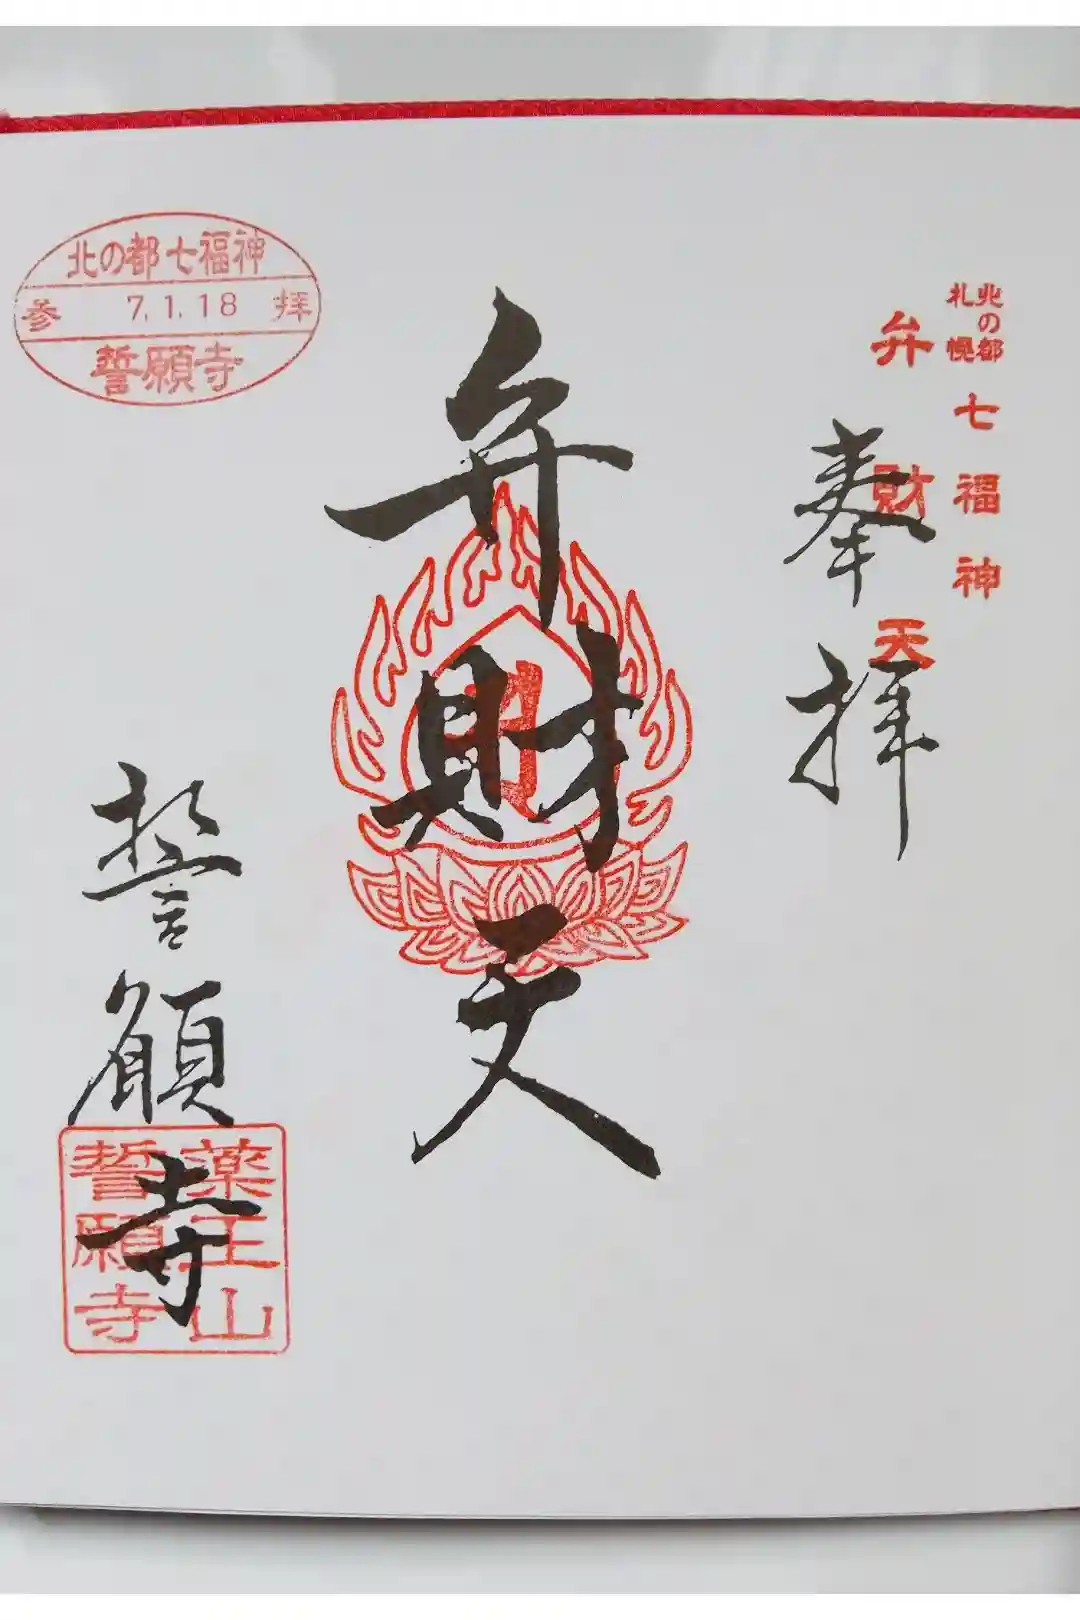 北の都
札幌
七福神
弁財天
奉拝
弁財天
北の都七福神
参 7.1.18 拝
誓願寺
誓願寺
薬王山
誓願寺